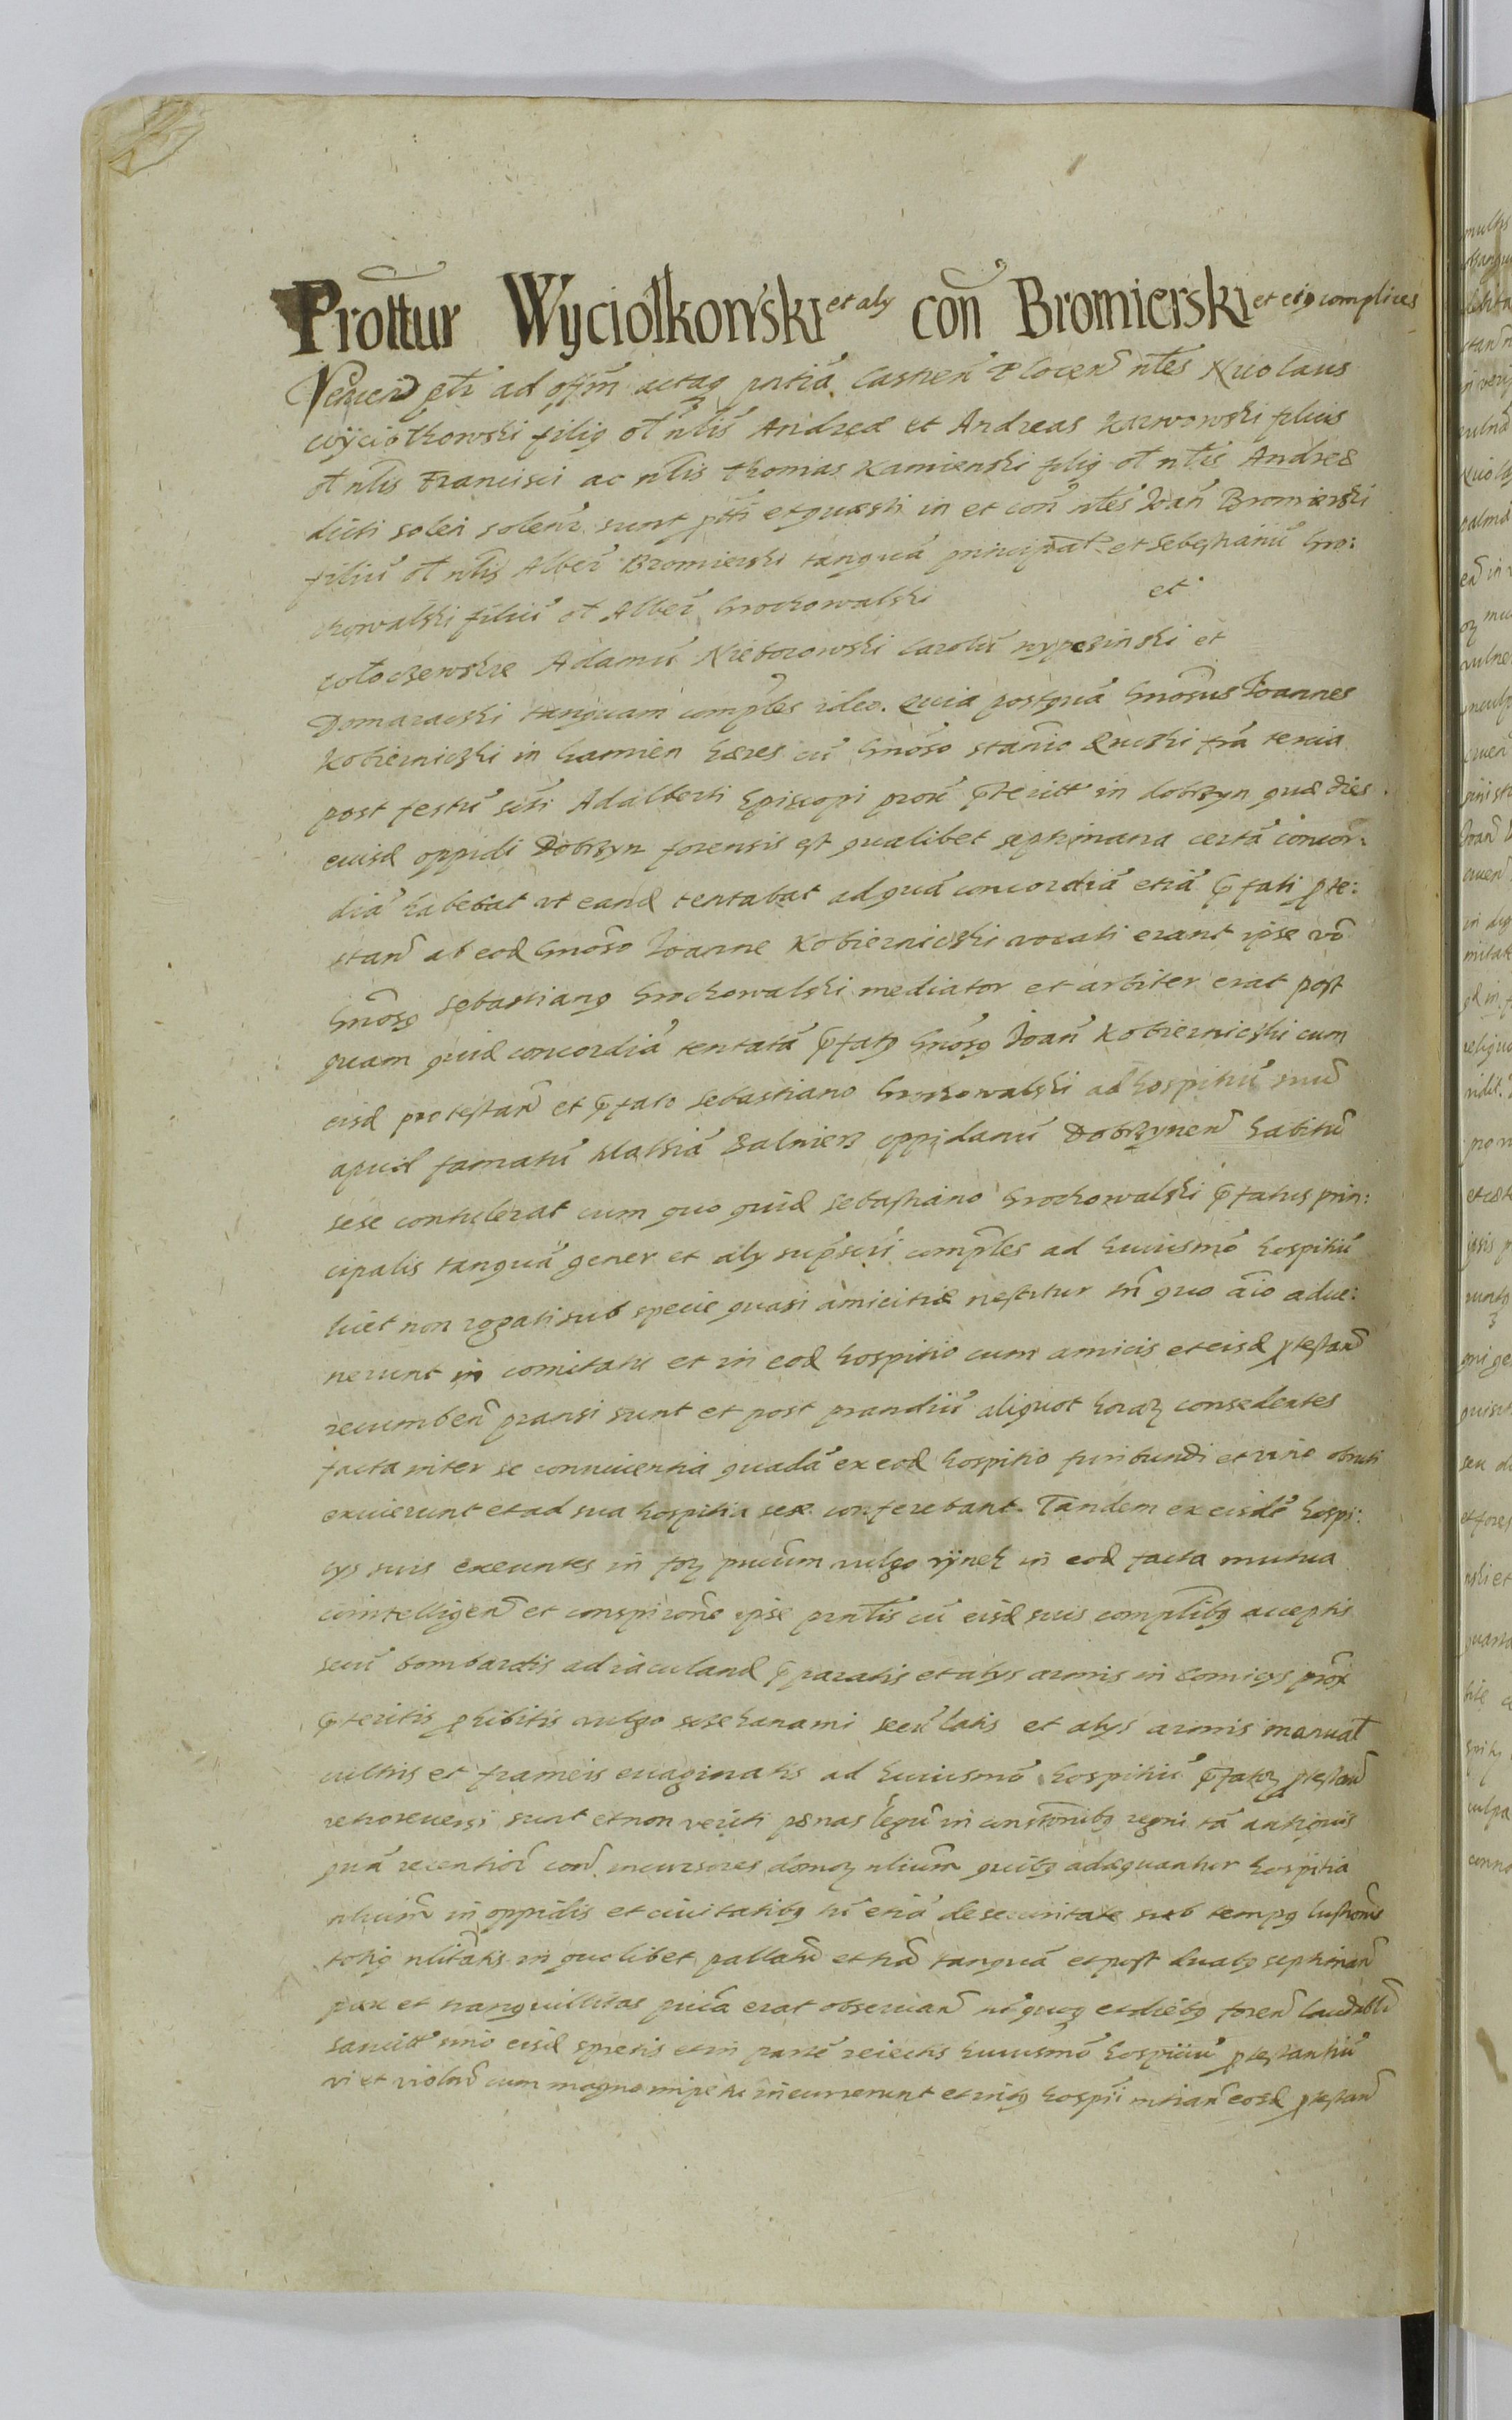 Prottur Wyciolkowski et aly con Bromierski et eiq complices
Venien ptr ad offm actaq pntia Castren Plocen nles Nicolaus
Wyciolkowski filiq ol nlis Andreæ et Andreas Karwowski filius
ol nlis Francisci ac nlis Thomas Kamienski filiq ol nlis Andreæ
ducti solen solenr sunt ptti et quæsti in et con nles Joan Bromierski
filiu ol nlis Alber Bromierski tanquā principal et Sebestianū Gro:
chowalski filiū ol Alber Grochowalski et
Adamū Nieborowski Carolū et
Domaraczki tanquam comples ideo. Quia postquā Gnosus Joannes
Kobierniczki in Kamien hæres cū Gnoso Stanio fra tercia
post festū scti Adalberti Episcopi prox pteritt in dobrzyn quæ dies
eiusd oppidi Dobrzyn forensis est qualibet septimana certā concor:
diā habebat vt eand tentabat ad quā concordiā etiā pfati pte:
stan ab eod Gnoso Joanne Kobiernicki vocati erant ipse vo
Gnosq Sebastianq Grochowalski mediator et arbiter erat post
quam quid concordiā tentatā pfatq Gnosq Joan Kobiernicki cum
eisd protestan et pfato Sebastiano Grochowalski ad hospitiū suū
apud famatū Mathiā oppidanū Dobrzynen habitū
sese contulerat cum quo quid Sebastiano Grochowalski pfatus prin:
cipalis tanquā gener et aly supscri comples ad huiusmo hospitiū
licet non rogati sub specie quasi amicitiæ nescitur tn quo aio adue:
nerunt in comitatu et in eod hospitio cum amicis et eisd ptestan
recumben pransi sunt et post prandiū aliquot horaz consedentes
facta inter se conniuentia quadā ex eod hospitio furibundi et vino obruti
exiuierunt et ad sua hospitia sese conferebant. Tandem ex eisde hospi:
cys suis exeuntes in foz pucum vulgo rÿnek in eod facta mutua
cointelligen et conspirone ipse pntlis cū eisd suis complibq acceptis
secū bombardis ad iaculand pparatis et alys armis in Comicys prox
pteritis phibitis vulgo secū latis et alys armis manual
cultris et frameis euaginatis ad huiusmo hospitiū pfatoz ptestan
retroreuersi sunt et non veriti pænas legū in constonibq regni tā antiquis
quā recentior con incursores domoz nliūm quibq adæquantur hospitia
nliūm in oppidis et ciuitatibq tū etiā de securitate sub tempq lustronis
totiq nlitatis in quolibet pallatū et tanquā et post duabq septiman
pax et tranquillitas puca erat obseruan et diebq foren laudabl
sancitt imo eisd spretis et in parte reiectis huiusmo hospitiū ptestantiū
vi et violen cum magno impetu incurrerunt et intq hospii eosd ptestan